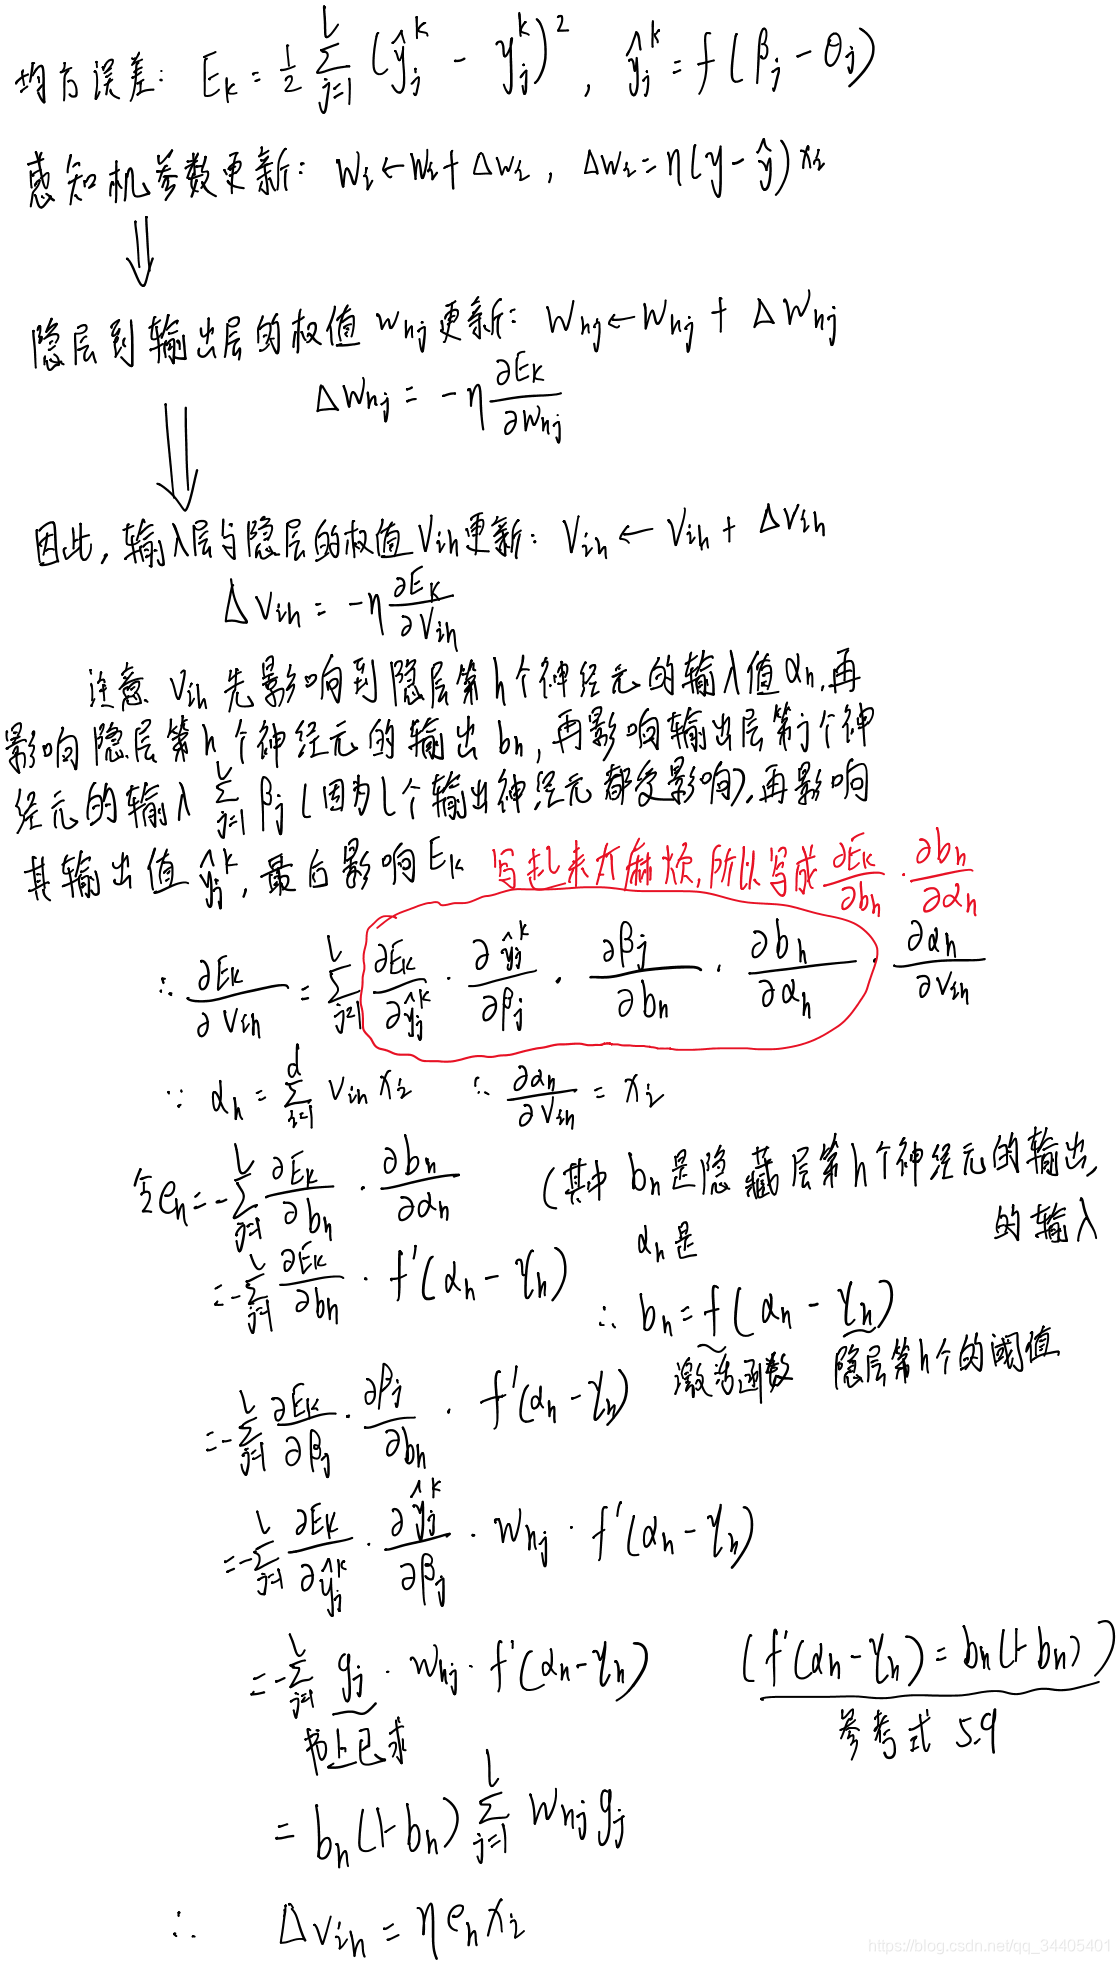 均方误差: E_k = 1/2 Σ_{j=1}^{l} (ŷ_j^k - y_j^k)^2 , ŷ_j^k = f(β_j - θ_j)
感知机参数更新: w_i ← w_i + Δw_i , Δw_i = η(y - ŷ)x_i
⇓
隐层到输出层的权值 w_hj 更新: w_hj ← w_hj + Δw_hj
Δw_hj = -η ∂E_k/∂w_hj
⇓
因此, 输入层与隐层的权值 v_ih 更新: v_ih ← v_ih + Δv_ih
Δv_ih = -η ∂E_k/∂v_ih
注意 v_ih 先影响到隐层第h个神经元的输入值 α_h, 再
影响隐层第h个神经元的输出 b_h, 再影响输出层第j个神
经元的输入 Σ_{j=1}^{l} β_j (因为l个输出神经元都受影响), 再影响
其输出值 ŷ_j^k, 最后影响 E_k 写起来太麻烦, 所以写成 ∂E_k/∂b_h · ∂b_h/∂α_h
∴ ∂E_k/∂v_ih = Σ_{j=1}^{l} ∂E_k/∂ŷ_j^k · ∂ŷ_j^k/∂β_j · ∂β_j/∂b_h · ∂b_h/∂α_h · ∂α_h/∂v_ih
∵ α_h = Σ_{i=1}^{d} v_ih x_i ∴ ∂α_h/∂v_ih = x_i
令 e_h = -Σ_{j=1}^{l} ∂E_k/∂b_h · ∂b_h/∂α_h (其中 b_h 是隐藏层第h个神经元的输出,
α_h 是 的输入
= -Σ_{j=1}^{l} ∂E_k/∂b_h · f'(α_h - γ_h) ∴ b_h = f(α_h - γ_h)
激活函数 隐层第h个的阈值
= -Σ_{j=1}^{l} ∂E_k/∂β_j · ∂β_j/∂b_h · f'(α_h - γ_h)
= -Σ_{j=1}^{l} ∂E_k/∂ŷ_j^k · ∂ŷ_j^k/∂β_j · w_hj · f'(α_h - γ_h)
= -Σ_{j=1}^{l} g_j · w_hj · f'(α_h - γ_h) (f'(α_h - γ_h) = b_h(1-b_h))
书上已求 参考式 5.9
= b_h(1-b_h) Σ_{j=1}^{l} w_hj g_j
∴ Δv_ih = η e_h x_i
https://blog.csdn.net/qq_34405401